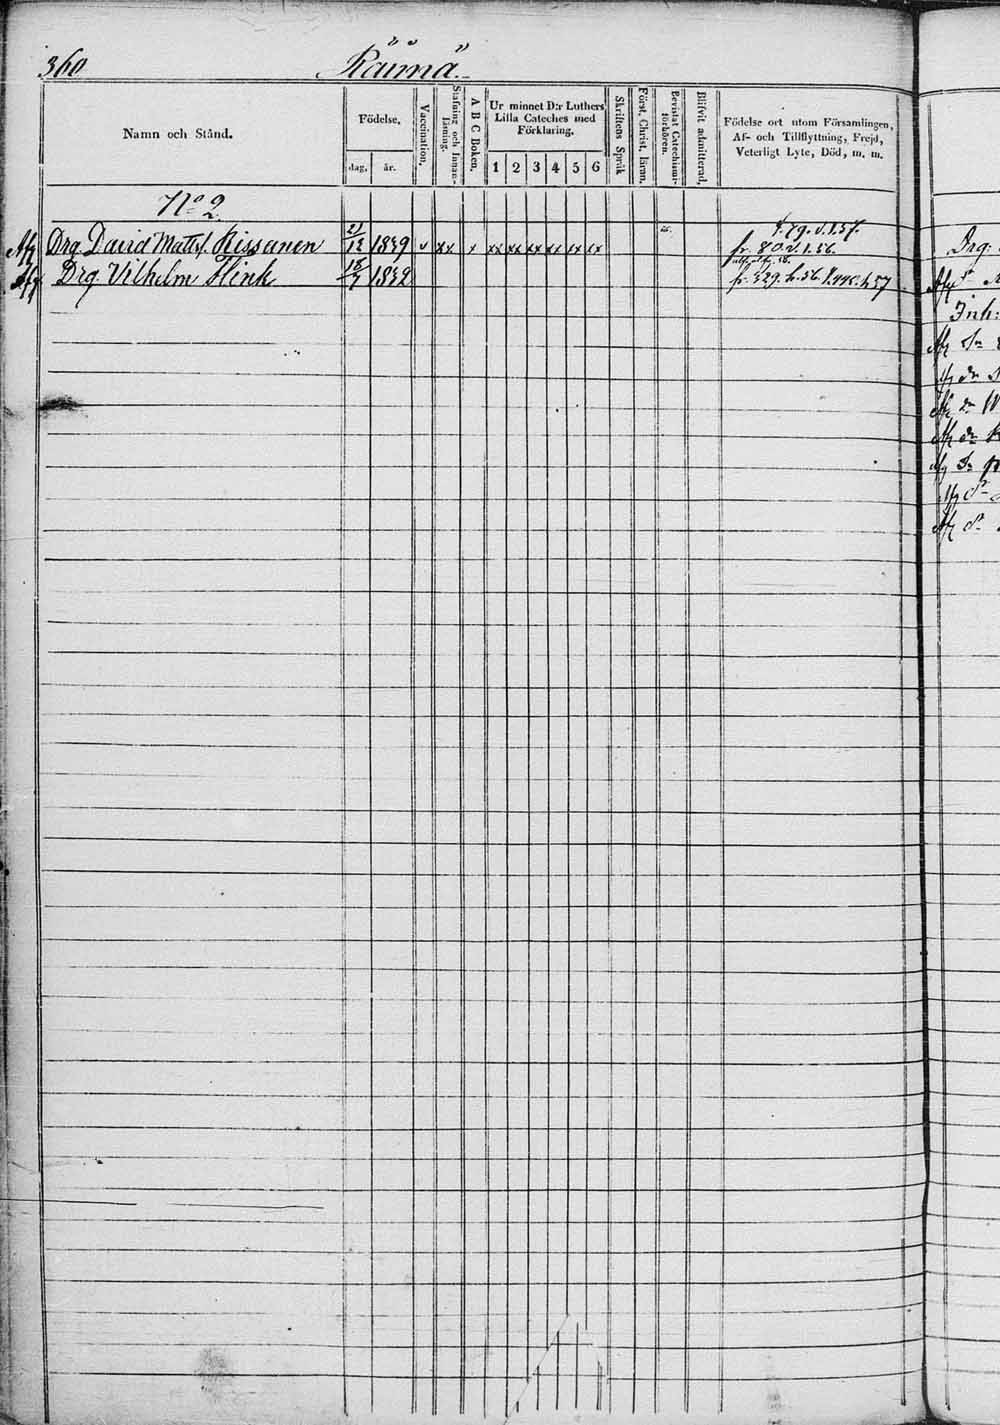 360 Räimä.
Namn och Stånd.
Födelse,
dag, år.
Vaccination.
Stafning och Innan-Läsning.
A B C Boken.
Ur minnet D:r Luthers Lilla Cateches med Förklaring.
1 2 3 4 5 6
Skriftens Språk
Först. Christ. läran.
Bevistat Catechismi-förhören.
Blifvit admitterad.
Födelse ort utom Församlingen,
Af- och Tillflyttning, Frejd,
Veterligt Lyte, Död, m. m.
No 2.
t. 79. d. 1.57.
Afg Drg David Matts f. Rissanen 21/12 1839 v xx x xx xx xx xx xx xx fr. 80. d. 1.56.
Afg Drg Vilhelm Flink 18/7 1832 fr. 329. h. 56. t. 445. h 57
Drg:
Inh: